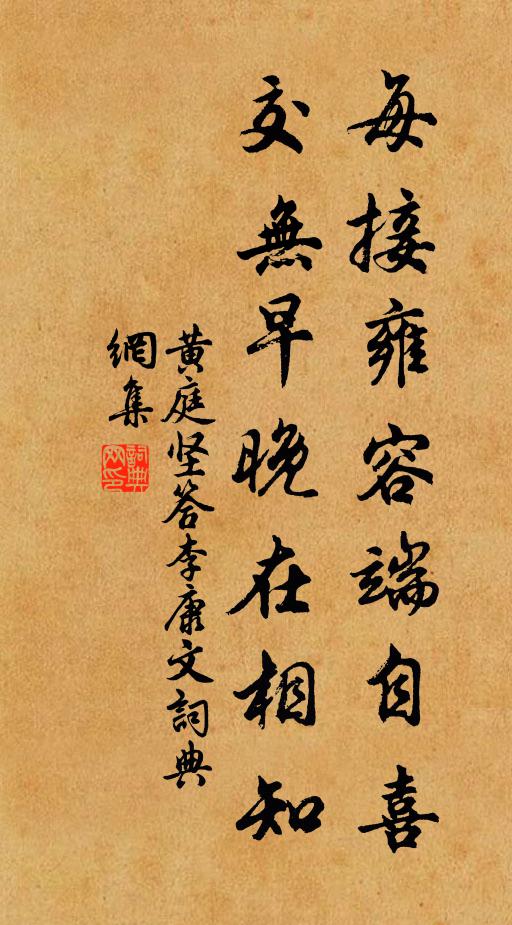 每接雍容端自喜
交無早晚在相知
黄庭坚答李康文詞典
網集
詞典
网印